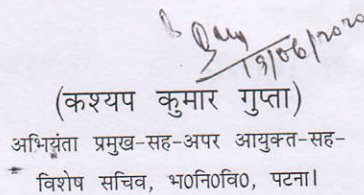 19/06/2020
(कश्यप कुमार गुप्ता)
अभियंता प्रमुख-सह-अपर आयुक्त-सह-
विशेष सचिव, भ0नि0वि0, पटना।